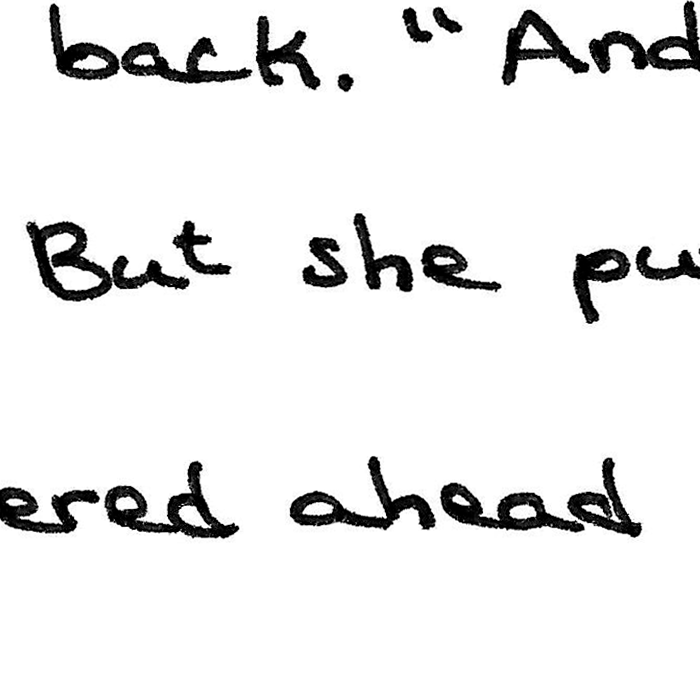 back. " And
But she pu
ered ahead